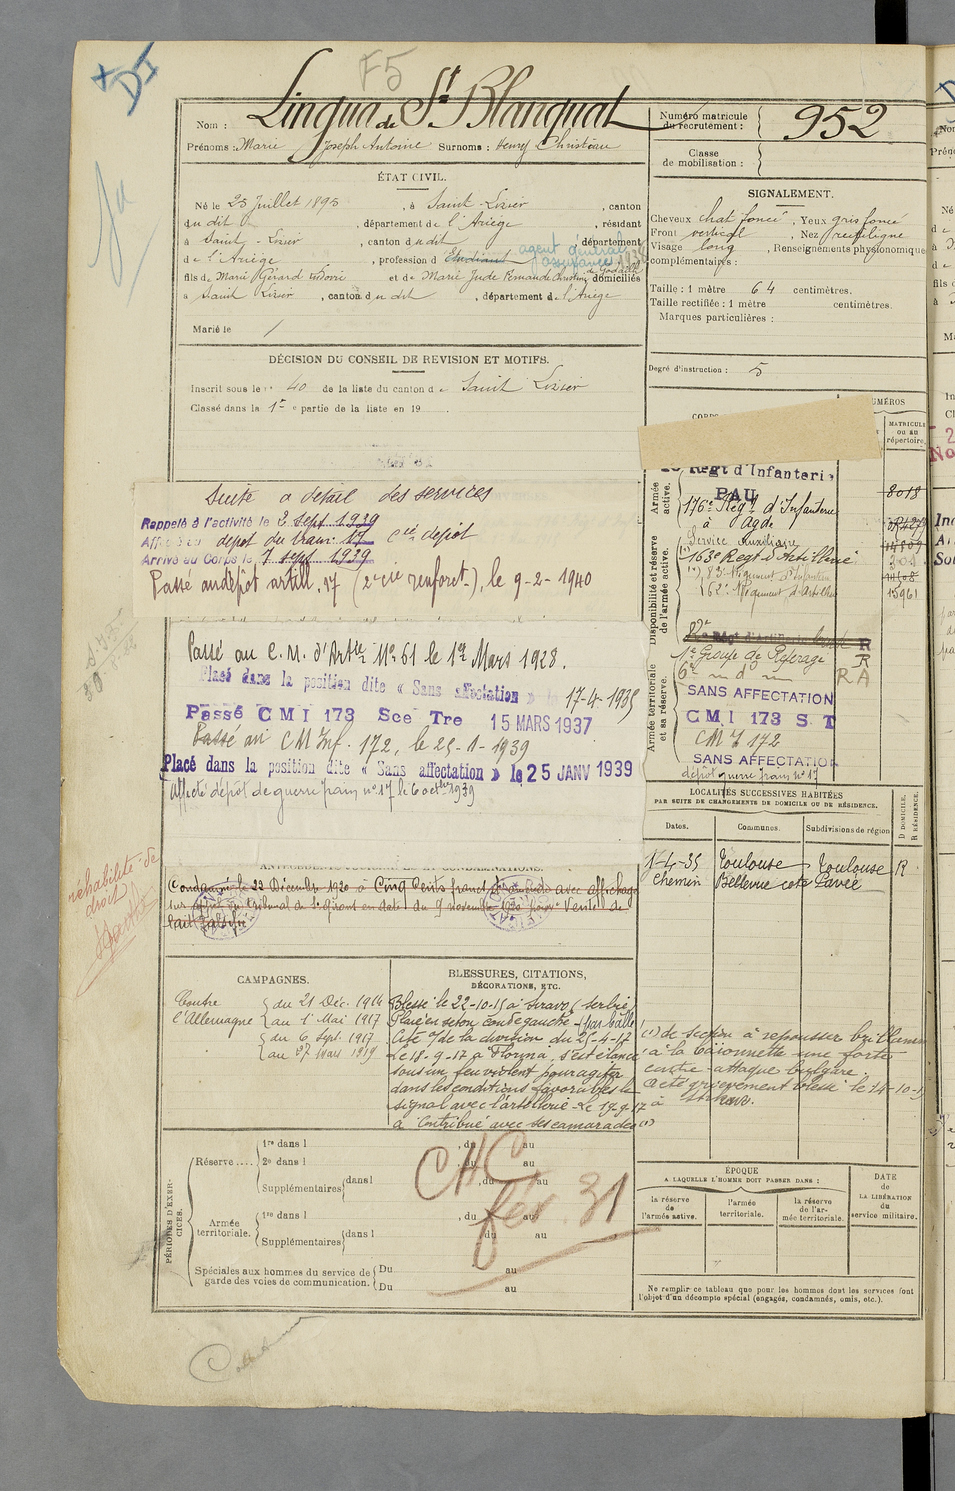 + DI
F5
Nom : Lingua de St Blanquat
Prénoms : Marie Joseph Antoine Surnoms : Henry Christian
Numéro matricule du recrutement : 952
Classe de mobilisation :
ÉTAT CIVIL.
Né le 23 Juillet 1895, à Saint-Lizier, canton
du dit, département de l'Ariège, résidant
à Saint-Lizier, canton du dit, département
de l'Ariège, profession d'Etudiant agent général assurances 1938
fils de Marie Gérard et de Marie Jude Fernande Christine de domiciliés
à Saint Lizier, canton du dit, département de l'Ariège
Marié le /
SIGNALEMENT.
Cheveux chat foncé, Yeux gris foncé
Front vertical, Nez rectiligne
Visage long, Renseignements physionomiques
complémentaires :
Taille : 1 mètre 64 centimètres.
Taille rectifiée : 1 mètre centimètres.
Marques particulières :
Degré d'instruction : 5
DÉCISION DU CONSEIL DE REVISION ET MOTIFS.
Inscrit sous le n° 40 de la liste du canton de Saint Lizier
Classé dans la 1re partie de la liste en 19
Suite a détail des services
Rappelé à l'activité le 3 sept 1939
Affecté au dépôt du train 17 cie dépôt
Arrivé au Corps le 7 sept 1939
Passé au dépôt artill. 37 (2e cie renfort), le 9-2-1940
Passé au C. M. d'Artie N° 61 le 1er Mars 1928.
Placé dans la position dite « Sans affectation » le 17-4-1935
Passé CMI 173 Sce Tre 15 MARS 1937
Passé au CM Inf. 172, le 25-1-1939
Placé dans la position dite « Sans affectation » le 25 JANV 1939
Affecté dépôt de guerre train n° 17 le 6 octbre 1939
NUMÉROS
MATRICULE ou au répertoire.
Armée active.
Régt d'Infanterie
PAU
8018
176e Régt d'Infanterie
à Agde
Disponibilité et réserve de l'armée active.
Service Auxiliaire
163e Régt d'Artillerie
83e Régiment d'Infanterie
62e Régiment d'Artillerie
15961
Armée territoriale et sa réserve.
82e
R
1er Groupe de Repérage R
6e — d — RA
SANS AFFECTATION
CMI 173 S T
CM I 172
SANS AFFECTATION
dépôt guerre train n° 17
LOCALITÉS SUCCESSIVES HABITÉES
PAR SUITE DE CHANGEMENTS DE DOMICILE OU DE RÉSIDENCE.
Dates. Communes. Subdivisions de région D DOMICILE, R RÉSIDENCE.
17-4-35 Toulouse Toulouse R
Chemin Bellevue cote Pavée
réhabilité de droit
Condamné le 22 Décembre 1920 à Cinq Cents francs d'amende avec affichage
sur appel du tribunal de St Girons en date du 9 novembre 1920 pour Vente de
lait falsifié
CAMPAGNES.
Contre l'Allemagne
du 21 Déc. 1914
au 1 Mai 1917
du 6 Sept. 1917
au 27 Mars 1919
BLESSURES, CITATIONS,
DÉCORATIONS, ETC.
Blessé le 22-10-15 à Stravo (Serbie)
Plaie en séton coude gauche par balle
Cité O/ de la division du 25-4-17
Le 18-9-17 à Florina, s'est élancé
sous un feu violent pour agiter
dans les conditions favorables le
signal avec l'artillerie. Le 19-9-17
a contribué avec ses camarades (1)
(1) de section à repousser brillamment
à la baïonnette une forte
contre-attaque bulgare.
A été grièvement blessé le 14-10-15
à
PÉRIODES D'EXERCICES.
Réserve....
1re dans l , du au
2e dans l , du au
Supplémentaires dans l , du au
Armée territoriale.
1re dans l , du au
Supplémentaires dans l du au
Spéciales aux hommes du service de garde des voies de communication.
Du au
Du au
CHC
fév. 31
ÉPOQUE
A LAQUELLE L'HOMME DOIT PASSER DANS :
la réserve de l'armée active. l'armée territoriale. la réserve de l'armée territoriale.
DATE de LA LIBÉRATION du service militaire.
Ne remplir ce tableau que pour les hommes dont les services font
l'objet d'un décompte spécial (engagés, condamnés, omis, etc.).